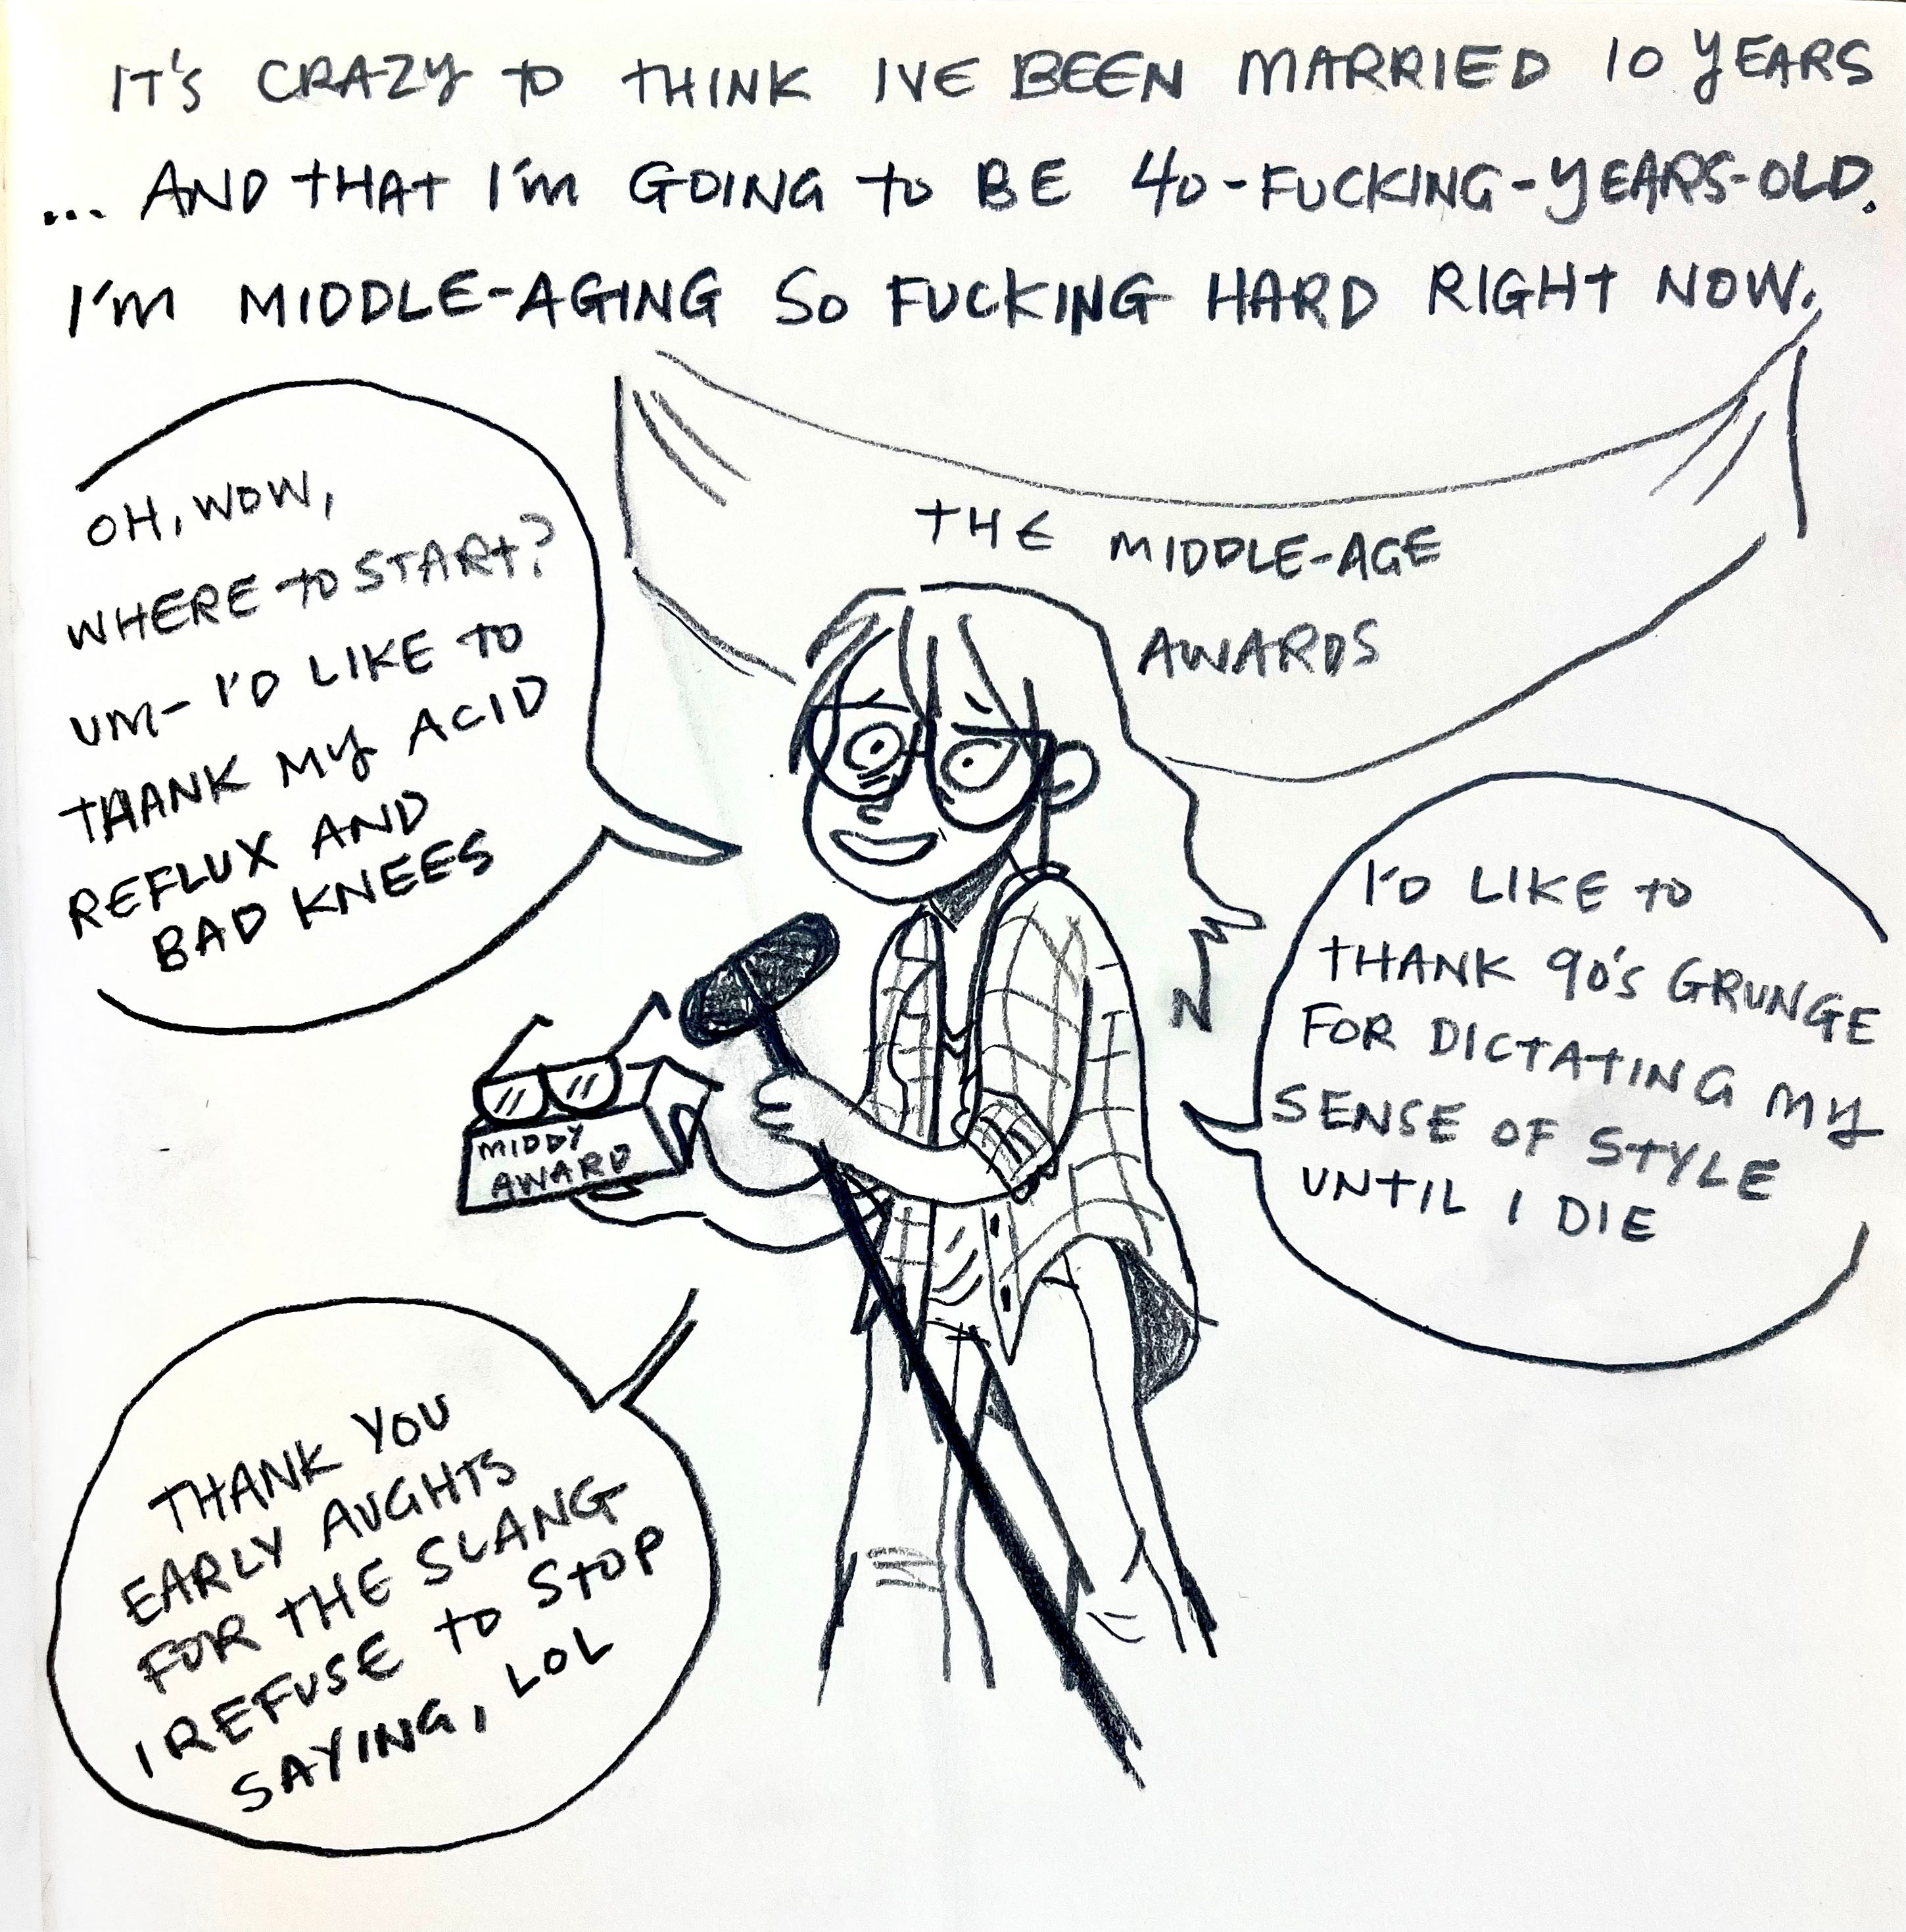 IT'S CRAZY TO THINK IVE BEEN MARRIED 10 YEARS
... AND THAT I'M GOING TO BE 40-FUCKING-YEARS-OLD.
I'M MIDDLE-AGING SO FUCKING HARD RIGHT NOW.
OH, WOW,
WHERE TO START?
UM- I'D LIKE TO
THANK MY ACID
REFLUX AND
BAD KNEES
THE MIDDLE-AGE
AWARDS
I'D LIKE TO
THANK 90'S GRUNGE
FOR DICTATING MY
SENSE OF STYLE
UNTIL I DIE
MIDDY
AWARD
THANK YOU
EARLY AUGHTS
FOR THE SLANG
I REFUSE TO STOP
SAYING, LOL